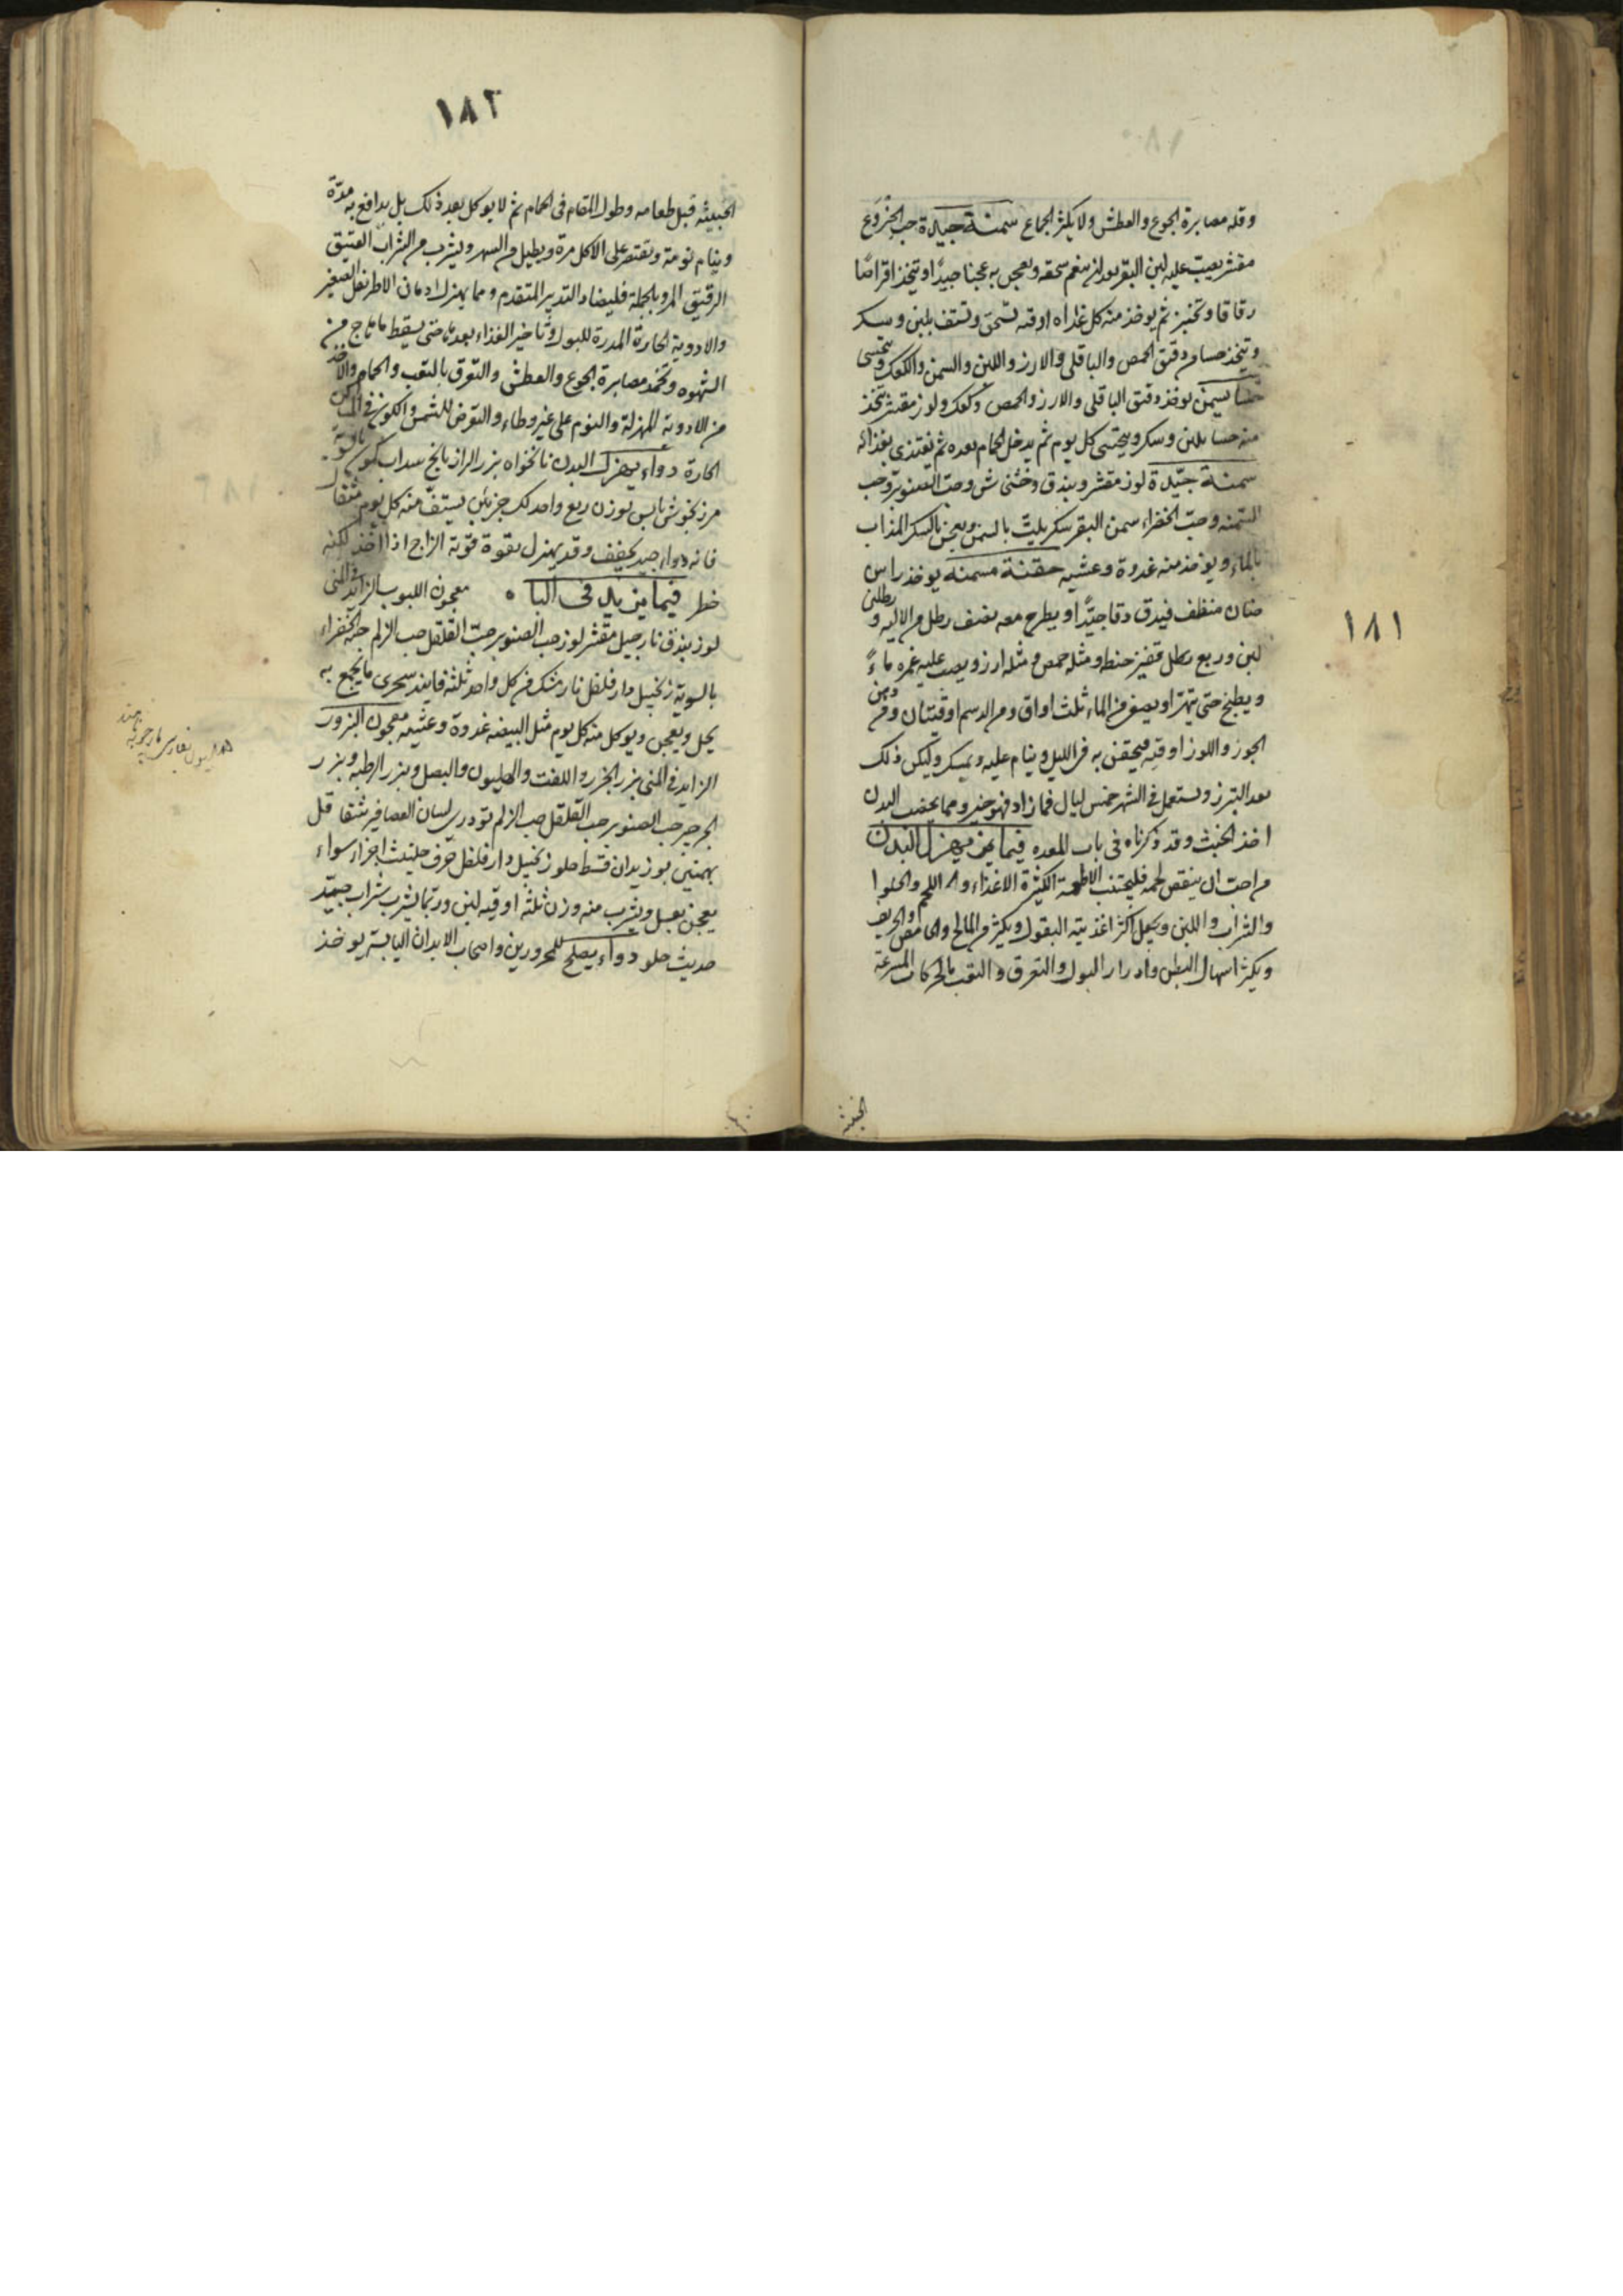 ١٨١
وقله مصابرة الجوع والعطش ولا يكثر الجماع سمنة جيدة حب الخروع
مقشر يصب عليه لبن البقر بعد ان ينعم سحقه ويعجن به عجنا جيدا ويتخذ اقراصا
رقاقا وتخبز ثم يوخذ منه كل غداه اوقيه تسحق وتستف بلبن وسكر
ويتخذ حسا من دقيق الحمص والباقلى والارز واللبن والسمن والكعك ويتحسى
حسا يسمن يوخذ دقيق الباقلى والارز والحمص وكعك ولوز مقشر يتخذ
منه حسا بلبن وسكر ويتحسى كل يوم ثم يدخل الحمام بعده ثم يغتذى بغذائه
سمنة جيدة لوز مقشر وبندق وفستق وحب الصنوبر وحب
السمنه وحب الخضراء سمن البقر سكر يلت بالسمن ويعجن بالسكر المذاب
بالماء ويوخذ منه غدوة وعشيه حقنة مسمنة يوخذ راس
ضان منظف فيدق دقا جيدا ويطرح معه نصف رطل من الاليه ورطلى
لبن وربع رطل قفيز حنطه ومثله حمص ومثله ارز ويصب عليه غمره ماء
ويطبخ حتى يتهرا ويصفى من الماء ثلث اواق ومن الدسم اوقيتان ومن دهن
الجوز واللوز اوقيه فيحقن به فى الليل وينام عليه ويمسكه وليكن ذلك
بعد التبرز وتستعمل فى الشهر خمس ليال فما زاد فهو خير ومما يخصب البدن
اخذ الخبث وقد ذكرناه فى باب المعده فيما يهزل البدن
من احب ان ينقص لحمه فليجتنب الاطعمة الكثيرة الاغذاء واللحم والحلوا
والشراب واللبن ويجعل اكثر اغذيته البقول ويكثر من المالح والحامض والحريف
ويكثر اسهال البطن وادرار البول والتعرق والتعب بالحركات المسرعة
الخبيثه
١٨٢
الخبيثه قبل طعامه وطول المقام فى الحمام ثم لا يوكل بعد ذلك بل يدافع به مدة
وينام نومة ويقتصر على الاكل مرة ويطيل من السهر ويشرب من الشراب العتيق
الرقيق المر وبالجملة فليضاد التدبير المتقدم ومما يهزل ادمان الاطريفل الصغير
والادوية الحارة المدرة للبول وتاخير الغذاء بعد ما حتى يسقط ما هاج من
الشهوه مصابرة الجوع والعطش والتعرق بالتعب والحمام والاخذ
من الادوية المهزلة والنوم على غير وطاء والتعرض للشمس والكون فى المساكن
الحارة دواء يهزل البدن نانخواه بزر الرازيانج سداب كمون بالسوية
مرزنجوش يابس بوزن ربع واحد لك جزئين يستف منه كل يوم مثقال
فانه دواء جيد يجفف وقد يهزل بقوة قوية الزاج اذا اخذ لكنه
خطر فيما يزيد فى الباه معجون اللبوب الزايد فى المنى
لوز بندق نارجيل مقشر لوز حب الصنوبر حب القلقل حب الزلم حبه الخضراء
بالسوية زنجبيل دار فلفل نارمشك من كل واحد ثلثه فانيد سحرى ما يجمع به
يحل ويعجن ويوكل منه كل يوم مثل البيضه غدوة وعشيه معجون البزور
الزايد فى المنى بزر الجزر واللفت والهليون والبصل وبزر الرطبه وبزر
الجرجير حب الصنوبر حب القلقل حب الزلم تودرى لسان العصافير شقاقل
بهمنين بوزيدان قسط حلو زنجبيل دار فلفل حرف حلتيت اجزاء سواء
يعجن بعسل ويشرب منه وزن ثلثه اوقيه لبن وربما يشرب بشراب جيد
حديث حلو دواء يصلح للمحرورين واصحاب الابدان اليابسة يوخذ
الهليون بفارسى مارچوبه